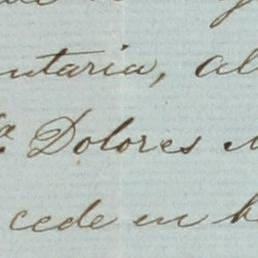 ntaria, al
ª Dolores
cede en